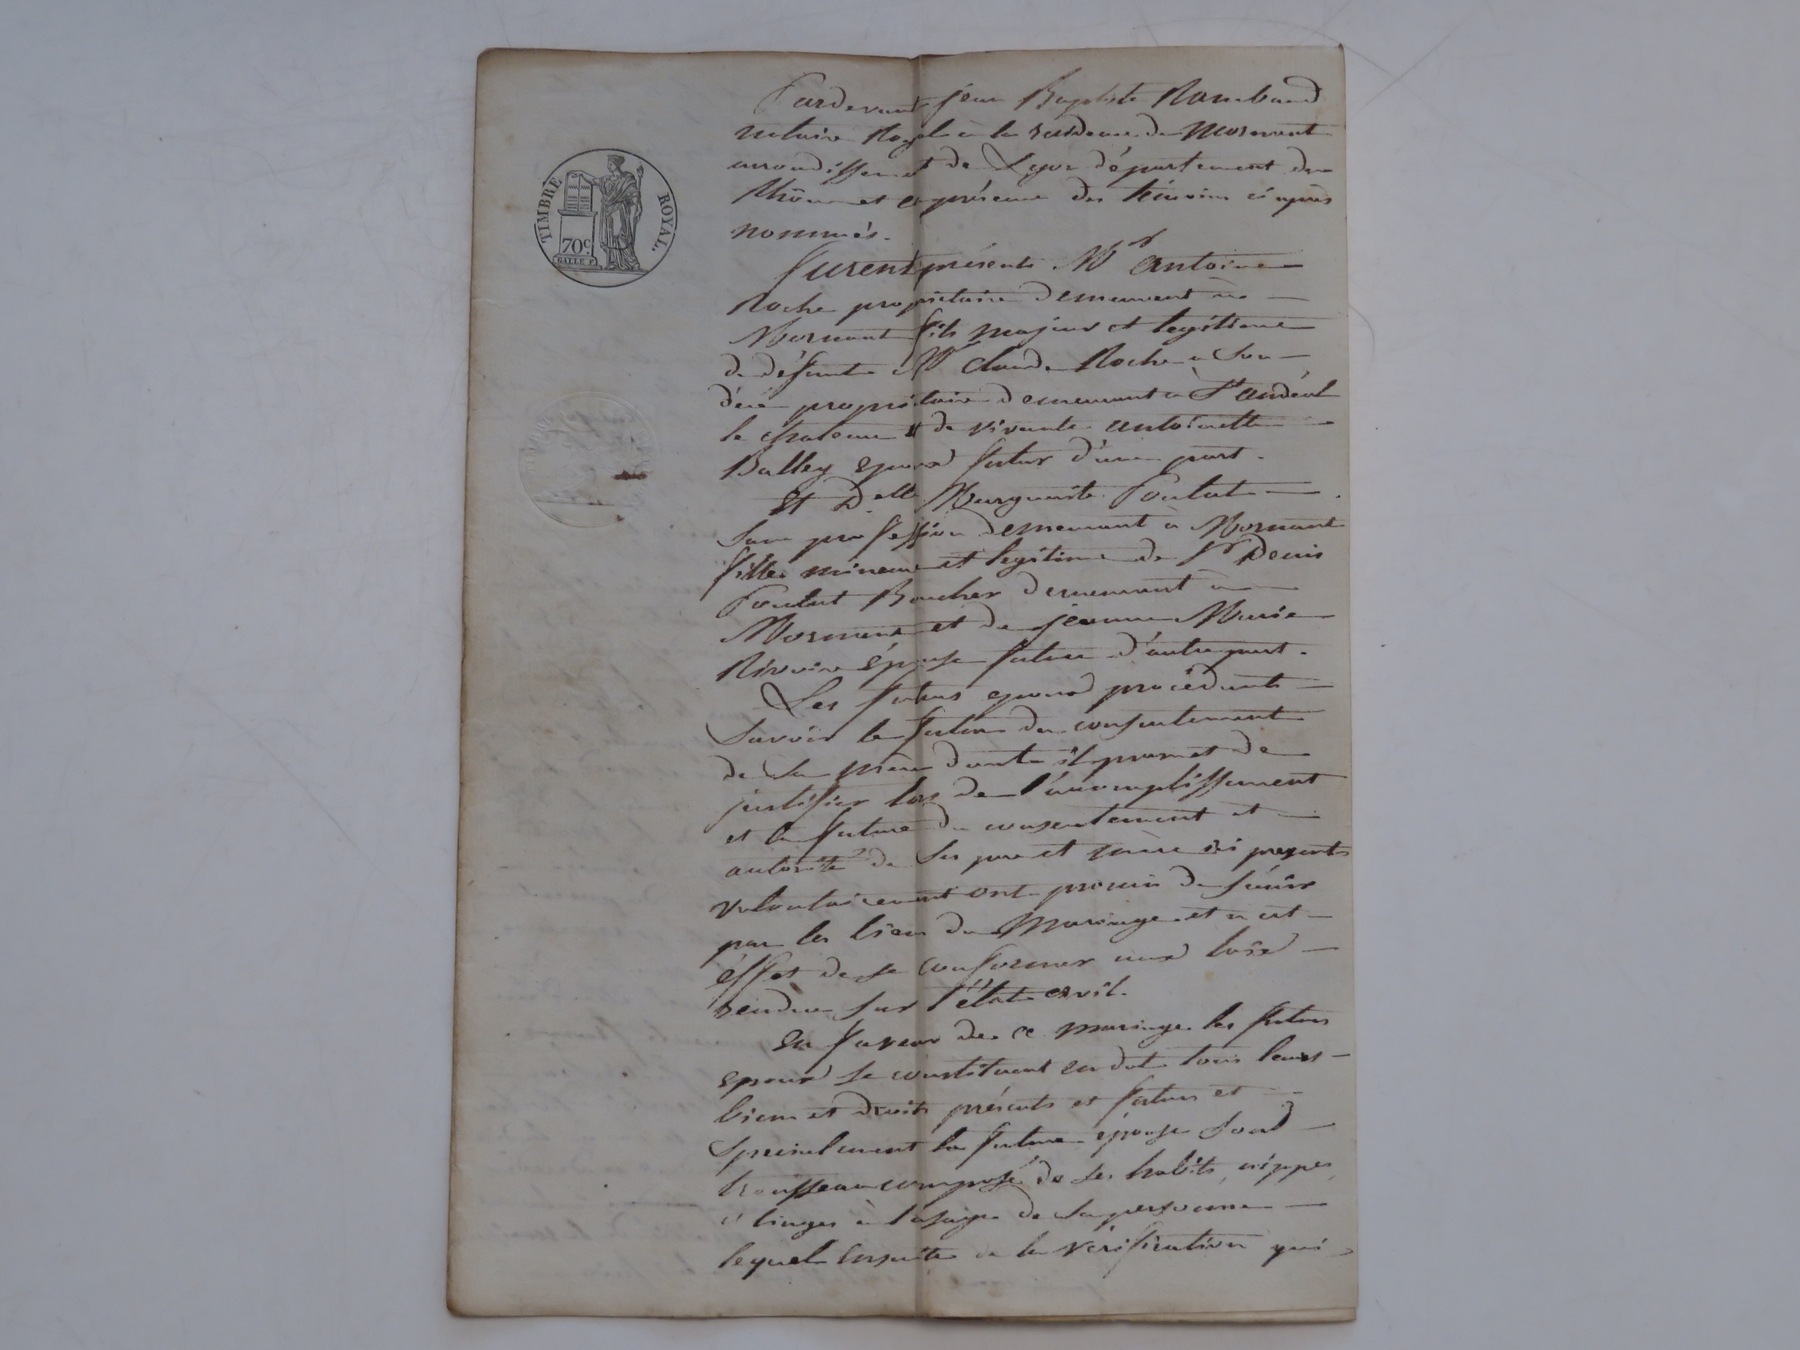 TIMBRE ROYAL.
70c.
Pardevant jean Baptiste Rambaud
notaire Royal à la residence de Mornant
arrondissement de Lyon département du
Rhône et en présence des témoins ci après
nommés.
furent présents Mr antoine
Roche propriétaire demeurant à
Mornant fils majeur et legitime
de défunt Mr Claude Roche a son
décè propriétaire demeurant à St andéol
le chateau & de vivante antoinette
Balley epoux futur d'une part.
Et Delle Marguerite Poulat
Sans profession demeurant à Mornant
fille mineure et legitime de Sr Denis
Poulat Boucher demeurant à
Mornant et de jeanne Marie
Rivoire épouse future d'autre part.
Les futurs epoux procédants
Savoir le futur du consentement
de sa mère dont il promet de
justifier lors de l'accomplissement
et la future du consentement et
autorité de ses père et mère ici presents
volontairement ont promis de s'unir
par les liens du Mariage et a cet
éffet de se conformer aux lois
rendue sur l'état civil.
En faveur de ce mariage les futurs
epoux se constituent en dot tous leurs
biens et droits présents et futurs et
Specialement la future épouse Son
trousseau composé de ses habits, nippes,
& linges à l'usage de sa personne
lequel ensuite de la vérification qui